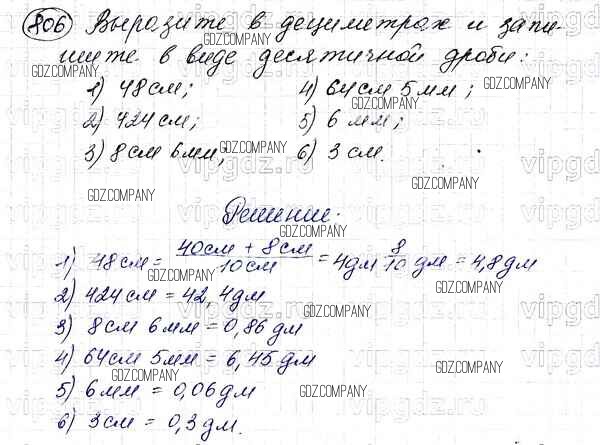 806 Выразите в дециметрах и запи-
шите в виде десятичной дроби:
1) 48 см; 4) 64 см 5 мм;
2) 424 см; 5) 6 мм;
3) 8 см 6 мм; 6) 3 см.
Решение.
1) 48 см = 40 см + 8 см / 10 см = 4 дм 8/10 дм = 4,8 дм
2) 424 см = 42,4 дм
3) 8 см 6 мм = 0,86 дм
4) 64 см 5 мм = 6,45 дм
5) 6 мм = 0,06 дм
6) 3 см = 0,3 дм.